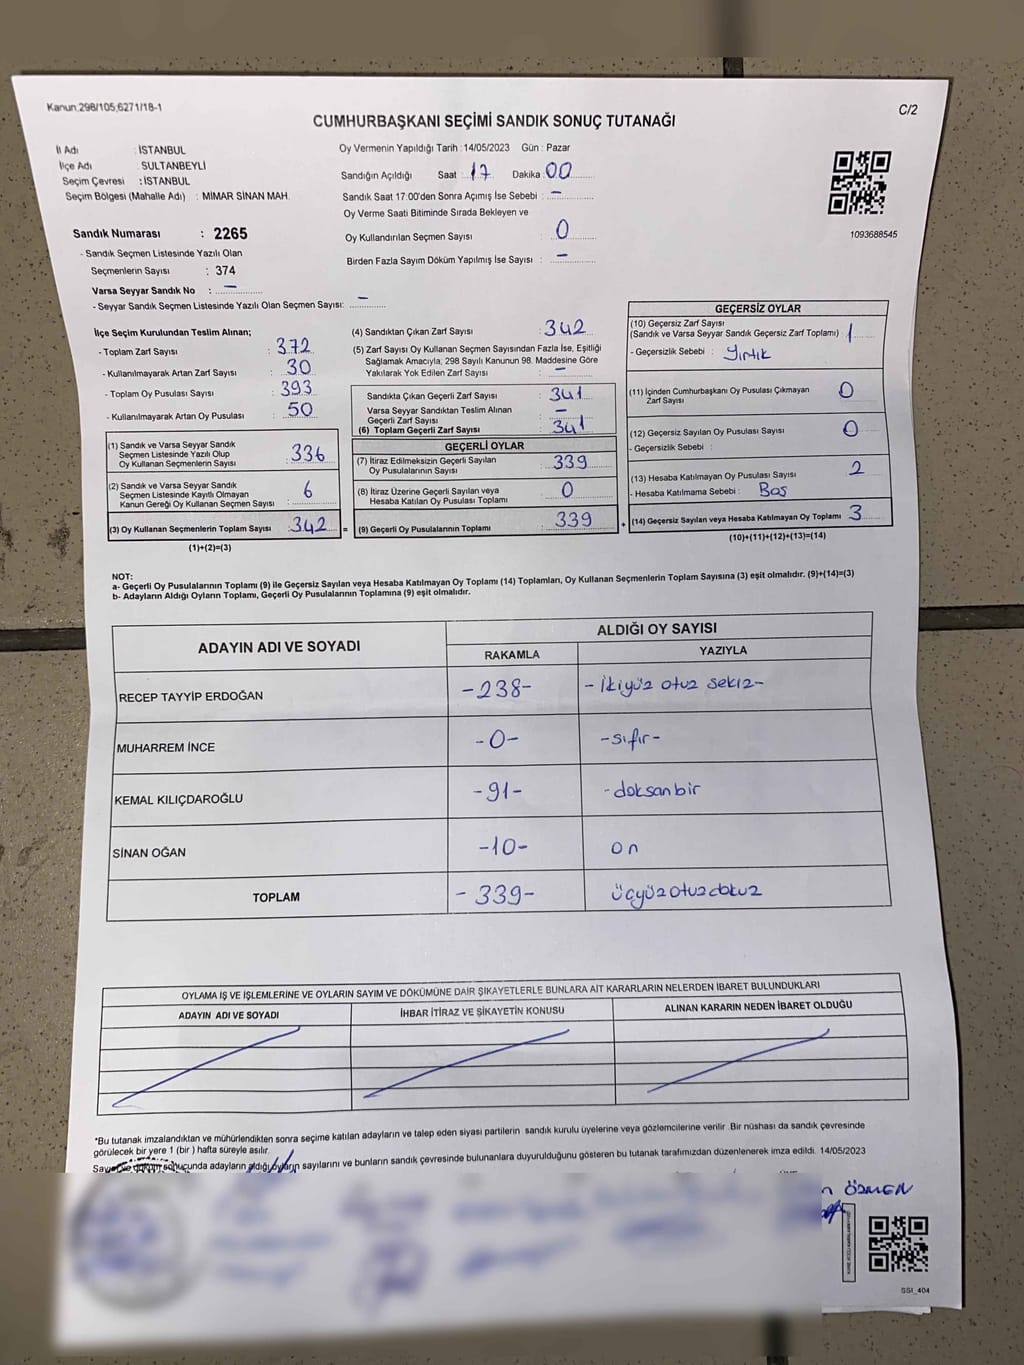 Kanun:298/105,6271/18-1
C/2
CUMHURBAŞKANI SEÇİMİ SANDIK SONUÇ TUTANAĞI
İl Adı : İSTANBUL
İlçe Adı : SULTANBEYLİ
Seçim Çevresi : İSTANBUL
Seçim Bölgesi (Mahalle Adı) : MİMAR SİNAN MAH.
Sandık Numarası : 2265
- Sandık Seçmen Listesinde Yazılı Olan
Seçmenlerin Sayısı : 374
Varsa Seyyar Sandık No : -
- Seyyar Sandık Seçmen Listesinde Yazılı Olan Seçmen Sayısı: -
Oy Vermenin Yapıldığı Tarih :14/05/2023 Gün : Pazar
Sandığın Açıldığı Saat : 17 Dakika : 00
Sandık Saat 17:00'den Sonra Açımış İse Sebebi : -
Oy Verme Saati Bitiminde Sırada Bekleyen ve
Oy Kullandırılan Seçmen Sayısı : 0
Birden Fazla Sayım Döküm Yapılmış İse Sayısı : -
1093688545
İlçe Seçim Kurulundan Teslim Alınan;
- Toplam Zarf Sayısı : 372
- Kullanılmayarak Artan Zarf Sayısı : 30
- Toplam Oy Pusulası Sayısı : 393
- Kullanılmayarak Artan Oy Pusulası : 50
(1) Sandık ve Varsa Seyyar Sandık
Seçmen Listesinde Yazılı Olup
Oy Kullanan Seçmenlerin Sayısı : 336
(2) Sandık ve Varsa Seyyar Sandık
Seçmen Listesinde Kayıtlı Olmayan
Kanun Gereği Oy Kullanan Seçmen Sayısı : 6
(3) Oy Kullanan Seçmenlerin Toplam Sayısı : 342 =
(1)+(2)=(3)
(4) Sandıktan Çıkan Zarf Sayısı : 342
(5) Zarf Sayısı Oy Kullanan Seçmen Sayısından Fazla İse, Eşitliği
Sağlamak Amacıyla; 298 Sayılı Kanunun 98. Maddesine Göre
Yakılarak Yok Edilen Zarf Sayısı : -
Sandıkta Çıkan Geçerli Zarf Sayısı : 341
Varsa Seyyar Sandıktan Teslim Alınan
Geçerli Zarf Sayısı : -
(6) Toplam Geçerli Zarf Sayısı : 341
GEÇERLİ OYLAR
(7) İtiraz Edilmeksizin Geçerli Sayılan
Oy Pusulalarının Sayısı : 339
(8) İtiraz Üzerine Geçerli Sayılan veya
Hesaba Katılan Oy Pusulası Toplamı : 0
(9) Geçerli Oy Pusulalarının Toplamı : 339 +
GEÇERSİZ OYLAR
(10) Geçersiz Zarf Sayısı
(Sandık ve Varsa Seyyar Sandık Geçersiz Zarf Toplamı) : 1
- Geçersizlik Sebebi : Yırtık
(11) İçinden Cumhurbaşkanı Oy Pusulası Çıkmayan
Zarf Sayısı : 0
(12) Geçersiz Sayılan Oy Pusulası Sayısı : 0
- Geçersizlik Sebebi :
(13) Hesaba Katılmayan Oy Pusulası Sayısı : 2
- Hesaba Katılmama Sebebi : Boş
(14) Geçersiz Sayılan veya Hesaba Katılmayan Oy Toplamı : 3
(10)+(11)+(12)+(13)=(14)
NOT:
a- Geçerli Oy Pusulalarının Toplamı (9) ile Geçersiz Sayılan veya Hesaba Katılmayan Oy Toplamı (14) Toplamları, Oy Kullanan Seçmenlerin Toplam Sayısına (3) eşit olmalıdır. (9)+(14)=(3)
b- Adayların Aldığı Oyların Toplamı, Geçerli Oy Pusulalarının Toplamına (9) eşit olmalıdır.
ADAYIN ADI VE SOYADI
ALDIĞI OY SAYISI
RAKAMLA YAZIYLA
RECEP TAYYİP ERDOĞAN -238- -İkiyüz otuz sekiz-
MUHARREM İNCE -0- -sıfır-
KEMAL KILIÇDAROĞLU -91- -doksanbir
SİNAN OĞAN -10- on
TOPLAM -339- üçyüzotuzdokuz
OYLAMA İŞ VE İŞLEMLERİNE VE OYLARIN SAYIM VE DÖKÜMÜNE DAİR ŞİKAYETLERLE BUNLARA AİT KARARLARIN NELERDEN İBARET BULUNDUKLARI
ADAYIN ADI VE SOYADI İHBAR İTİRAZ VE ŞİKAYETİN KONUSU ALINAN KARARIN NEDEN İBARET OLDUĞU
*Bu tutanak imzalandıktan ve mühürlendikten sonra seçime katılan adayların ve talep eden siyasi partilerin sandık kurulu üyelerine veya gözlemcilerine verilir. Bir nüshası da sandık çevresinde
görülecek bir yere 1 (bir ) hafta süreyle asılır.
sonucunda adayların aldığı oyların sayılarını ve bunların sandık çevresinde bulunanlara duyurulduğunu gösteren bu tutanak tarafımızdan düzenlenerek imza edildi. 14/05/2023
ÖZMEN
SSI_404